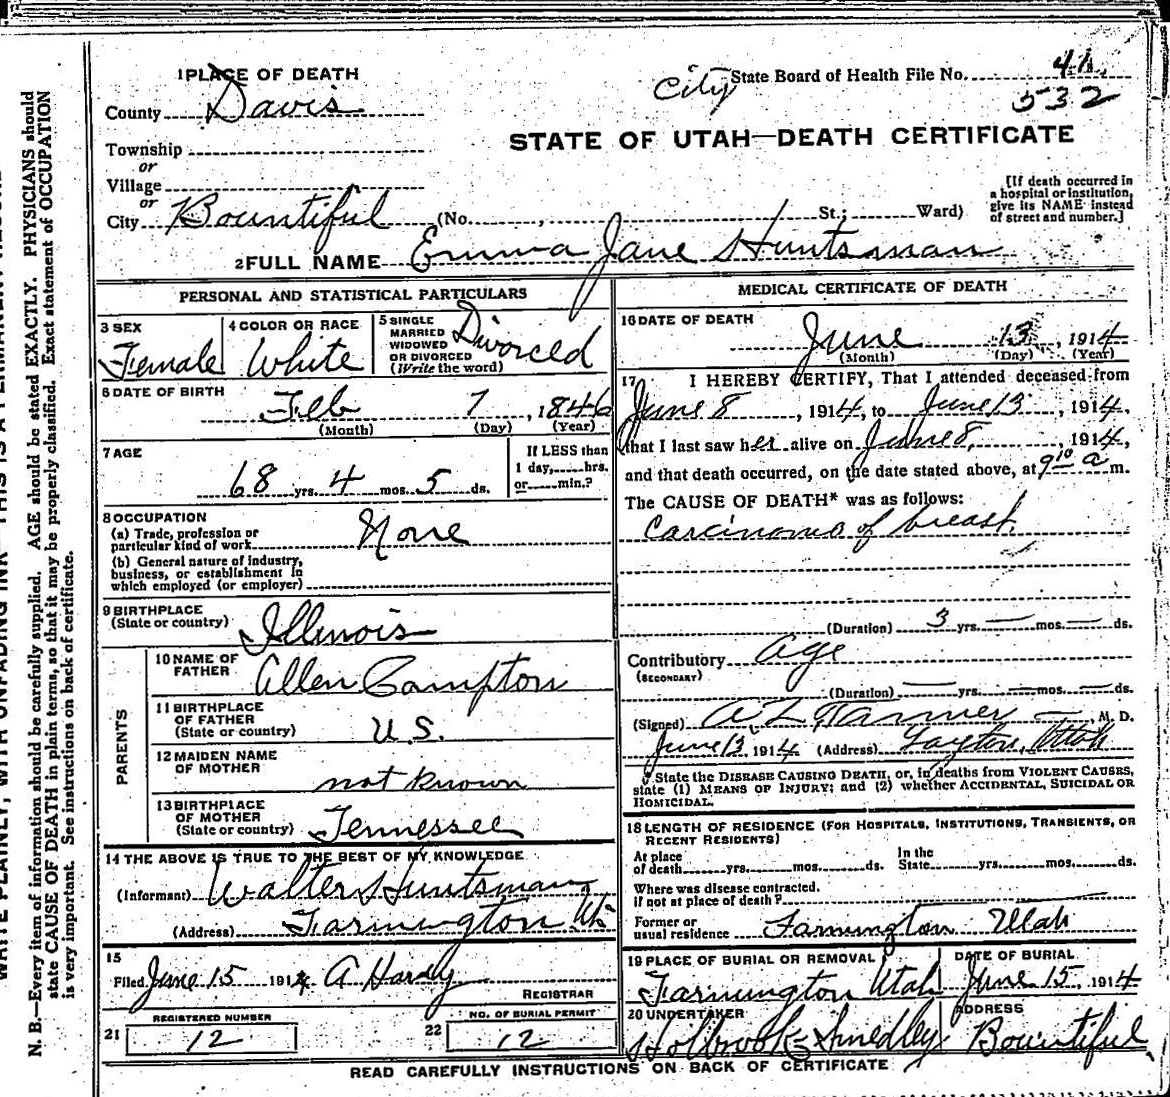 1 PLACE OF DEATH
County Davis
Township
or
Village
or
City Bountiful (No. , St.; Ward)
City State Board of Health File No. 41
532
STATE OF UTAH—DEATH CERTIFICATE
[If death occurred in
a hospital or institution,
give its NAME instead
of street and number.]
2 FULL NAME Emma Jane Huntsman
PERSONAL AND STATISTICAL PARTICULARS
3 SEX
Female
4 COLOR OR RACE
White
5 SINGLE
MARRIED
WIDOWED
OR DIVORCED
(Write the word)
Divorced
6 DATE OF BIRTH
Feb 7, 1846
(Month) (Day) (Year)
7 AGE
68 yrs. 4 mos. 5 ds.
If LESS than
1 day, hrs.
or min.?
8 OCCUPATION
(a) Trade, profession or
particular kind of work None
(b) General nature of industry,
business, or establishment in
which employed (or employer)
9 BIRTHPLACE
(State or country) Illinois
PARENTS
10 NAME OF
FATHER Allen Compton
11 BIRTHPLACE
OF FATHER
(State or country) U.S.
12 MAIDEN NAME
OF MOTHER
not known
13 BIRTHPLACE
OF MOTHER
(State or country) Tennessee
14 THE ABOVE IS TRUE TO THE BEST OF MY KNOWLEDGE
(Informant) Walter Huntsman
(Address) Farmington Ut
15
Filed June 15 1914 A Hardy
REGISTRAR
21 REGISTERED NUMBER
12
22 NO. OF BURIAL PERMIT
12
MEDICAL CERTIFICATE OF DEATH
16 DATE OF DEATH
June 13, 1914
(Month) (Day) (Year)
17 I HEREBY CERTIFY, That I attended deceased from
June 8, 1914, to June 13, 1914,
that I last saw her alive on June 8, 1914,
and that death occurred, on the date stated above, at 9 10 a m.
The CAUSE OF DEATH* was as follows:
Carcinoma of breast
(Duration) 3 yrs. — mos. — ds.
Contributory Age
(SECONDARY)
(Duration) — yrs. — mos. — ds.
(Signed) A Z Tanner — M. D.
June 13, 1914 (Address) Layton, Utah
* State the DISEASE CAUSING DEATH, or, in deaths from VIOLENT CAUSES,
state (1) MEANS OF INJURY; and (2) whether ACCIDENTAL, SUICIDAL OR
HOMICIDAL.
18 LENGTH OF RESIDENCE (FOR HOSPITALS, INSTITUTIONS, TRANSIENTS, OR
RECENT RESIDENTS)
At place
of death yrs. mos. ds. In the
State yrs. mos. ds.
Where was disease contracted.
if not at place of death?
Former or
usual residence Farmington Utah
19 PLACE OF BURIAL OR REMOVAL
Farmington Utah
DATE OF BURIAL
June 15, 1914
20 UNDERTAKER
Holbrook & Smedley
ADDRESS
Bountiful
READ CAREFULLY INSTRUCTIONS ON BACK OF CERTIFICATE
N. B.—Every item of information should be carefully supplied. AGE should be stated EXACTLY. PHYSICIANS should
state CAUSE OF DEATH in plain terms, so that it may be properly classified. Exact statement of OCCUPATION
is very important. See instructions on back of certificate.